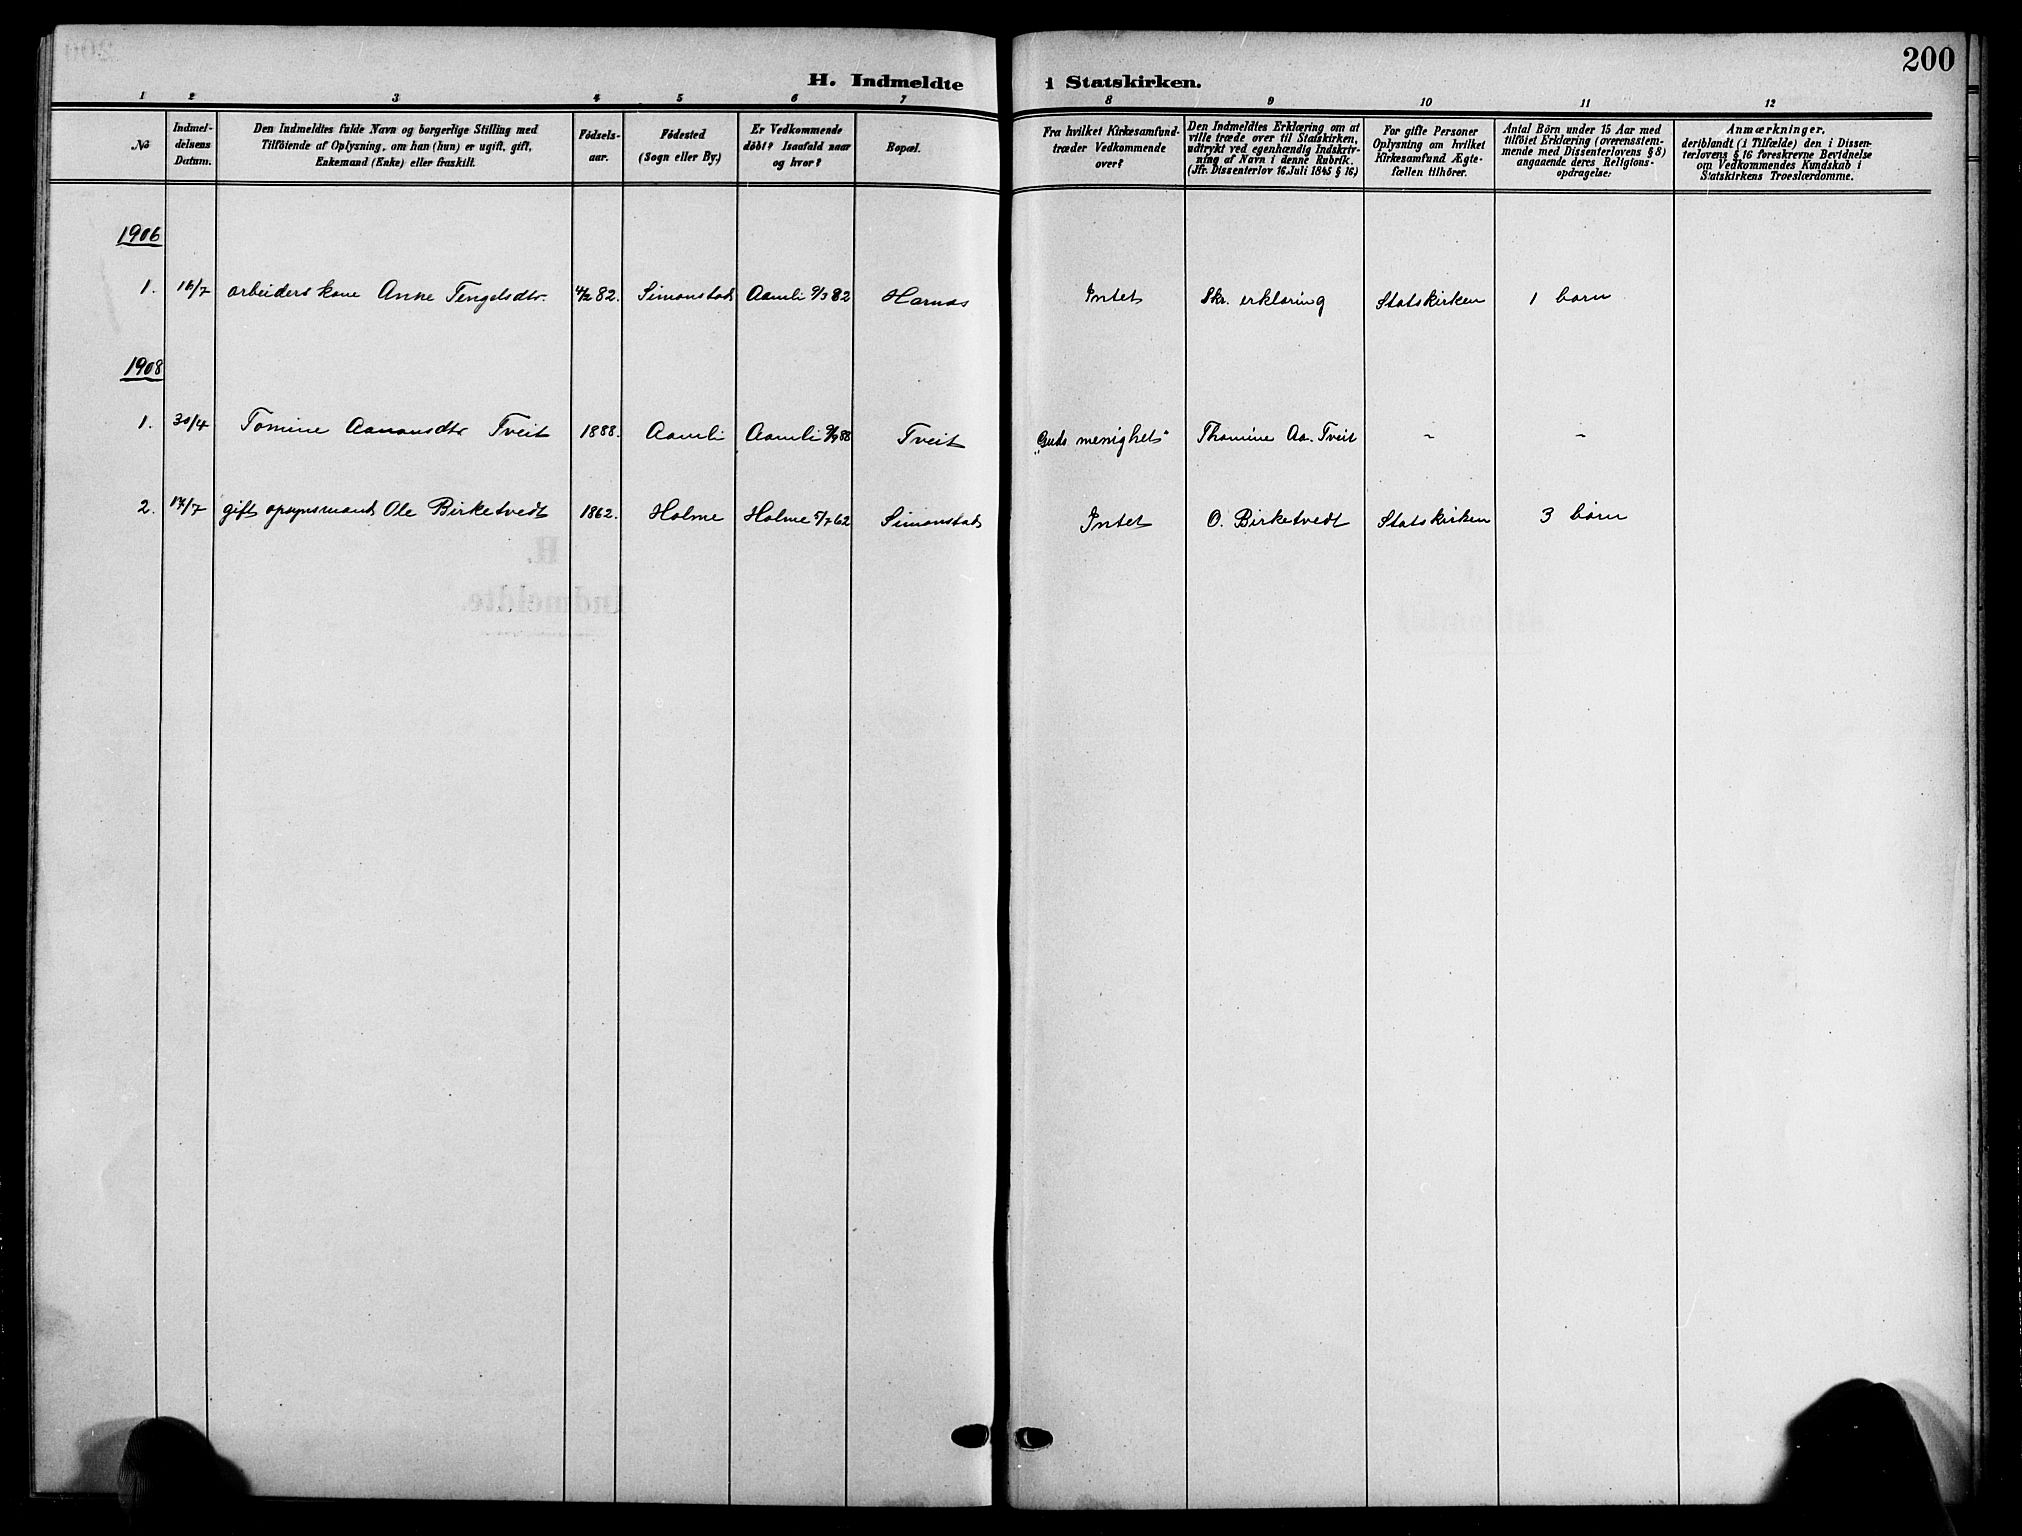 200
H. Indmeldte i Statskirken.
1 2 3 4 5 6 7 8 9 10 11 12
No
Indmel-
delsens
Datum.
Den Indmeldtes fulde Navn og borgerlige Stilling med
Tilföiende af Oplysning, om han (hun) er ugift, gift,
Enkemand (Enke) eller fraskilt.
Födsels-
aar.
Födested
(Sogn eller By.)
Er Vedkommende
döbt? Isaafald naar
og hvor?
Bopæl.
Fra hvilket Kirkesamfund
træder Vedkommende
over?
Den Indmeldtes Erklæring om at
ville træde over til Statskirken,
udtrykt ved egenhændig Indskriv-
ning af Navn i denne Rubrik.
(Jfr. Dissenterlov 16. Juli 1845 § 16)
For gifte Personer
Oplysning om hvilket
Kirkesamfund Ægte-
fællen tilhörer.
Antal Börn under 15 Aar med
tilföiet Erklæring (overensstem-
mende med Dissenterlovens § 8)
angaaende deres Religions-
opdragelse:
Anmærkninger,
deriblandt (i Tilfælde) den i Dissen-
terlovens § 16 foreskrevne Bevidnelse
om Vedkommendes Kundskab i
Statskirkens Troeslærdomme.
1906
1. 16/7 arbeiders kone Anne Tengelsdtr. 4/2 82. Simonstad Aamli 9/3 82 Harnas Intet Skr. erklæring Statskirken 1 barn
1908
1. 30/4 Tomine Aanonsdtr Tveit 1888. Aamli Aamli 9/9 88 Tveit "Guds menighet" Thomine Aa. Tveit - -
2. 17/7 gift opsynsmand Ole Birketvedt 1862. Holme Holme 5/7 62 Simonstad Intet O. Birketvedt Statskirken 3 børn
H.
Indmeldte.